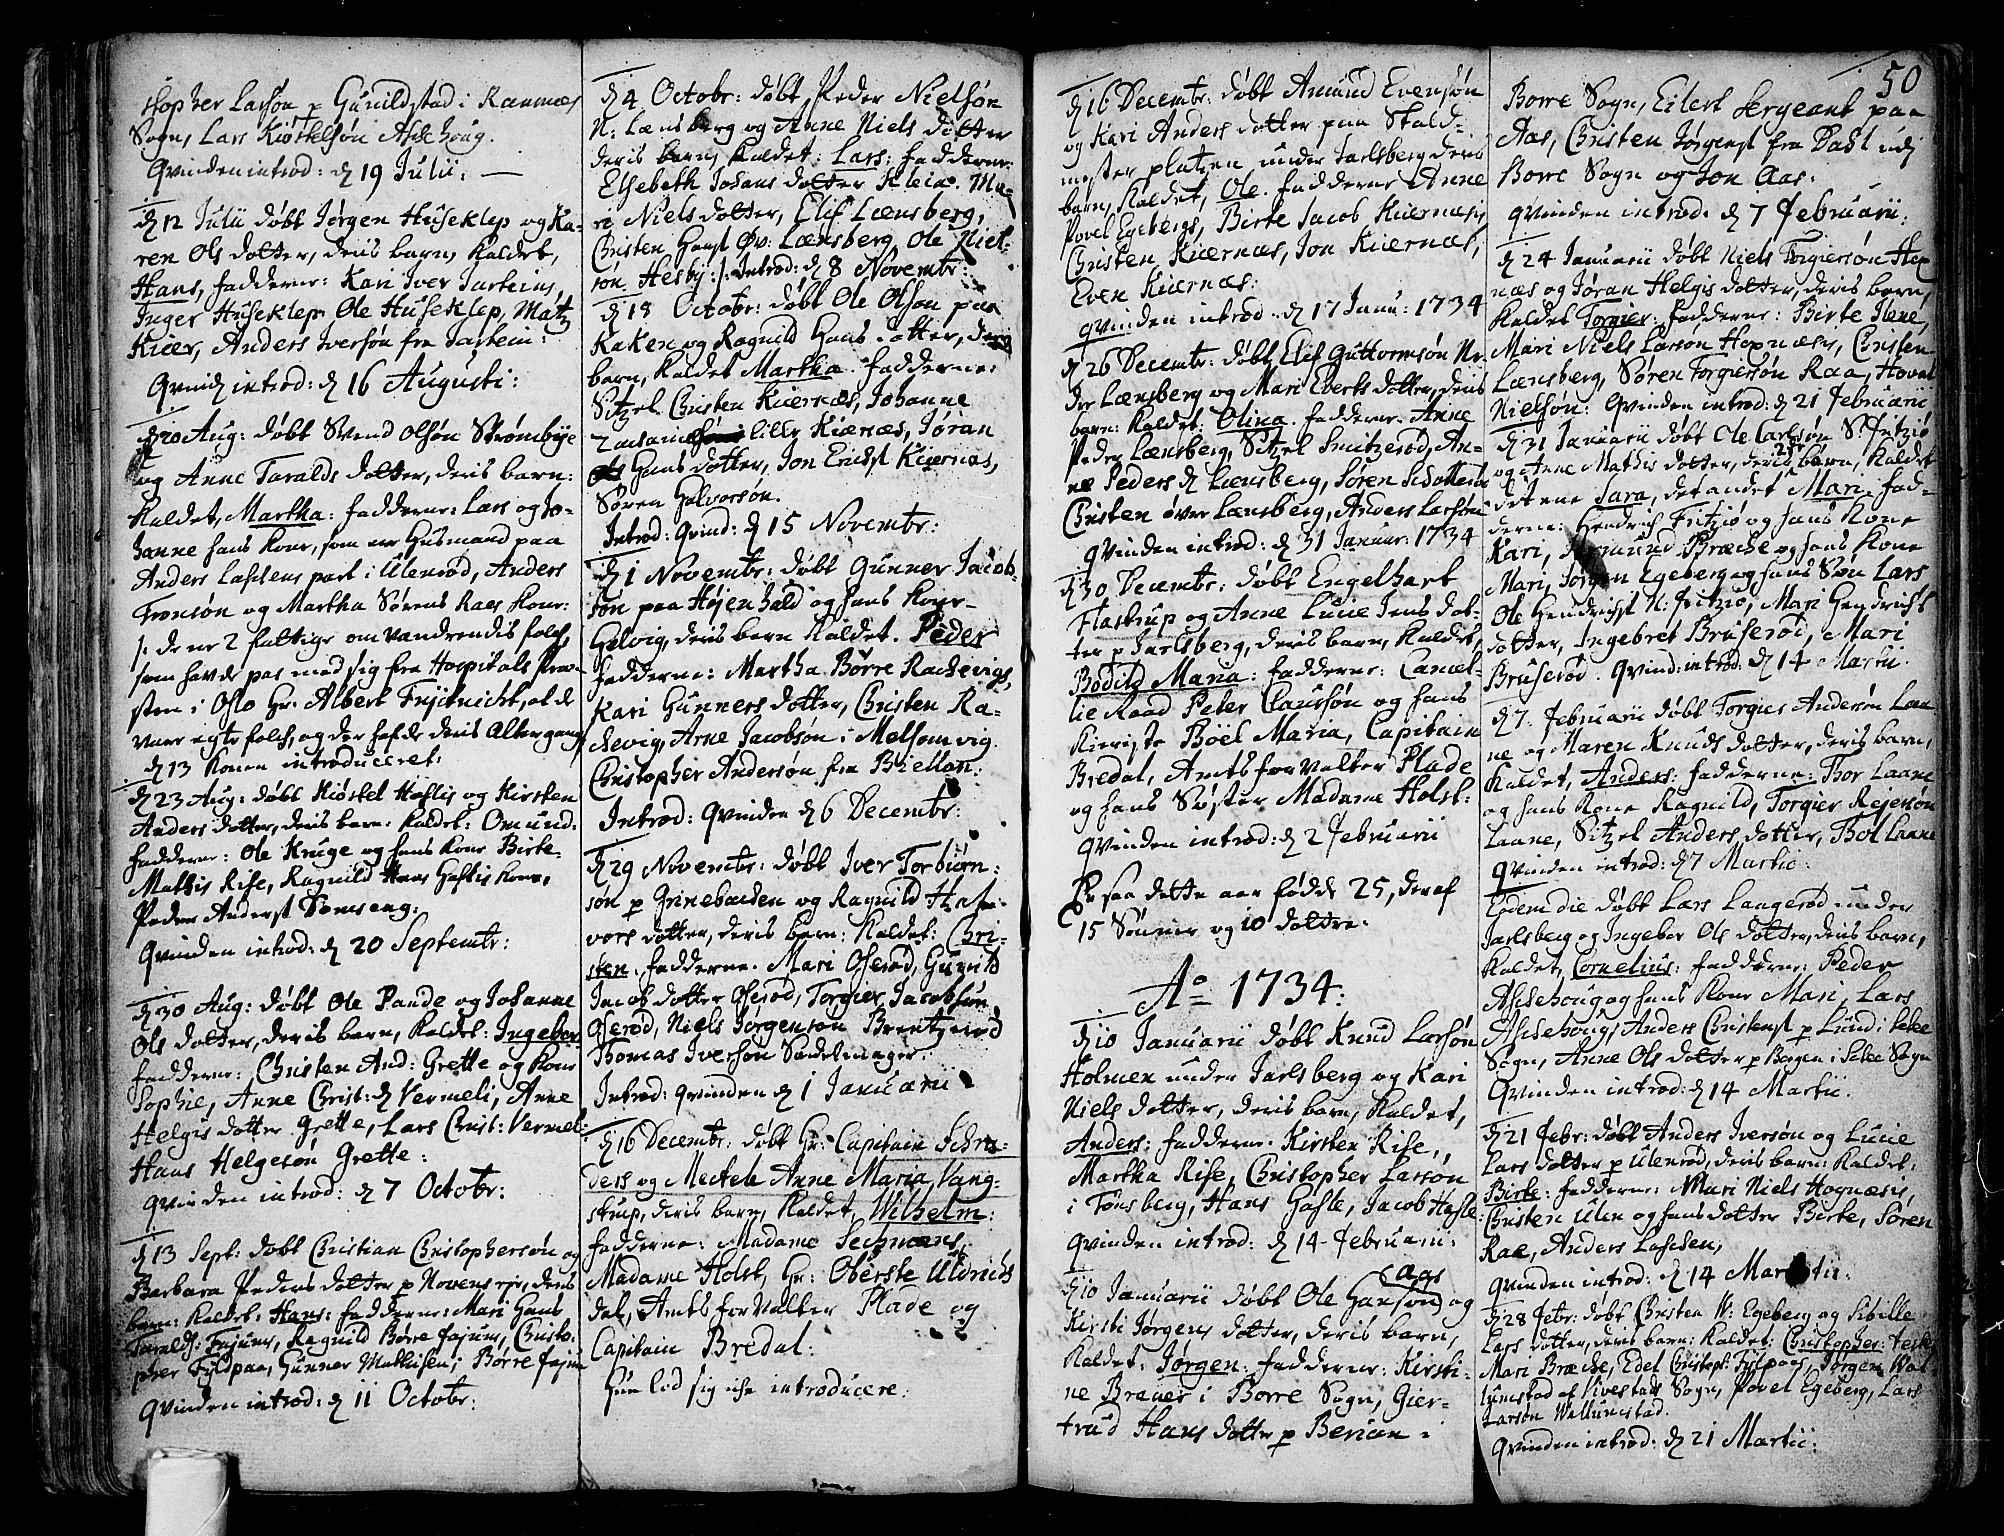 stopher Larsøn p Gunildstad i Ramnæs
Sogn, Lars Kiøstelsøn Askehoug.
Qvinden introd: d 19 Julii:
d 12 Julii døbt Jørgen Huseklep og Ka-
ren Ols dotter, deris barn, kaldet,
Hans, fadderne: Kari Iver Jarteins,
Inger Huseklep Ole Huseklep, Matz
Kiær, Anders Iversøn fra Jartein:
Qvind introd: d 16 Augusti:
d 20 Aug: døbt Svend Olsøn Strømbye
og Anne Taralds dotter, deris barn:
kaldet, Martha: fadderne: Lars og Jo-
hanne hans Kone, som er Husmand paa
Anders Laskens part i Ulenrød, Anders
Tronsøn og Martha Sørens Raes Kone:
/: de er 2 fattige omvandrendis folch,
som hafde pas med sig fra Hospitals Præ-
sten i Oslo Hr: Albert, at de
vaar egte folch, og der hafde deris Altergang
d 13 Konen introduceret:
d 23 Aug: døbt Kiøstel Haslis og Kirsten
Anders dotter, deris barn: kaldet: Omund:
fadderne: Ole Kruge og hans Kone Birte
Mathis Rise, Ragnild Hans Haslis Kone,
Peder Anderst Sømseng:
Qvinden introd: d 20 Septembr:
d 30 Aug: døbt Ole Pande og Johanne
Ols dotter, deris barn, kaldet: Ingebor
fadderne: Christen And: Grette og Kone
Sophie, Anne Christ: d Vermeli, Anne
Helgis dotter Grette, Lars Christ: Vermeli
Hans Helgesøn Grette:
Qvinden introd: d 7 Octobr:
d 13 Sept: døbt Christian Christophersøn og
Barbara Peders dotter p, deris
barn: kaldet: Hans: fadderne: Mari Hans
Taralds: Frejuns, Ragnild Børre Fajuns, Christo-
pher Fyldpaa, Gunner Mathisen, Børre Fajun
Qvinden introd: d 11 Octobr:
d 4 Octobr: døbt, Peder Nielsøn
N: Lænsberg og Anne Niels dotter
deris barn, kaldet: Lars: fadderne:
Elsebeth Johans dotter Klein. Ma-
ri Niels dotter, Elif Lænsberg,
Christen Hanst Øv: Lænsberg, Ole Niel-
søn Hesby: /: Introd: d 8 Novembr:
d 18 Octobr: døbt Ole Olsøn paa
Kaken og Ragnild Hans dotter, deris
barn, kaldet Martha. fadderne:
Sitzel Christen Kiernæs, Johanne
lille Kiernæs, Jøran
Hans dotter, Jon Erichst Kiernæs,
Søren Halvorsøn.
Introd: Qvind: d 15 Novembr:
d 1 Novembr: døbt Gunner Jacob-
søn paa Højenhald og hans Kone
Helvig, deris barn kaldet. Peder
fadderne: Martha Børre Rachevigs,
Kari Gunners dotter, Christen Ra-
chevig, Arne Jacobsøn i Melsomvig
Christopher Andersøn fra Biellan:
Introd: Qvinden d 6 Decembr:
d 29 Novembr: døbt Iver Torbiørn:
søn p Grinebanden og Ragnild Hal-
vors dotter, deris barn: kaldet: Chri-
sten, fadderne: Mari Oserød, Gunild
Jacob dotter Oserød, Torgier Jacobsøn
Oserød, Niels Jørgensøn Brentzerød
Thomas Iversøn Sadelmager:
Introd: Qvinden d 1 Januarii
d 16 Decembr: døbt Hr: Capitain Schra-
ders og Mectele Anne Maria Vang-
strup, deris barn, kaldet, Wilhelm:
fadderne: Madame Sechmans,
Madame Holst, Hr: Oberste Uldrichs
dal, Amtsforvalter Plade og
Capitain Bredal:
Hun lod sig iche introducere.
d 16 Decembr: døbt Amund Evensøn
og Kari Anders dotter paa Stald-
mester platzen under Jarlsberg deris
barn, kaldet, Ole. fadderne Anne
Povel Egebergs, Birte Jacob Kiernæsis,
Christen Kiernæs, Jon Kiernæs,
Even Kiernæs:
Qvinden introd: d 17 Janu: 1734
d 26 Decembr: døbt Elif Guttormsøn Ne-
der Lænsberg og Mari Everts dotter, deris
barn: kaldet: Olina. fadderne. Anne
Peder Lænsberg, Sitzel Smitzerød, An-
ne Peders d Lænsberg, Søren
Christen Over Lænsberg, Anders Larsøn
Qvinden introd: d 31 Januar: 1734
d 30 Decembr: døbt Engelhart
Flastrup og Anne Lucie Jens dot-
ter p Jarlsberg, deris barn, kaldet,
Bodild Maria: fadderne: Cancel-
lie Raad Peter Claussøn og hans
Kieriste Böel Maria, Capitain
Bredal, Amtsforvalter Plade
og hans Søster Madame Holst:
Qvinden introd: d 2 Februarii
Er saa dette aar fødde 25, deraf
15 Sønner og 10 døttre:
Ao 1734:
d 10 Januarii døbt Knud Larsøn
Holmen under Jarlsberg og Kari
Niels dotter, deris barn, kaldet,
Anders: fadderne. Kirsten Rise,
Martha Rise, Christopher Larsøn
i Tønsberg, Hans Hasle, Jacob Hasle
Qvinden introd: d 14 Februarii:
d 10 Januarii døbt Ole Hansøn Aas og
Kirsti Jørgens dotter, deris barn,
kaldet: Jørgen: fadderne: Kirsti-
ne Brauer i Borre Sogn, Gier-
trud Hans dotter p Berian i
50
Borre Sogn, Eilert Sergeant paa
Aas, Christen Jørgenst fra Dahl udj
Borre Sogn og Jon Aas:
Qvinden introd: d 7 Februarii:
d 24 Januarii døbt Niels Torgiersøn Hog
næs og Jøran Helgis dotter, deris barn,
kaldet Torgier: fadderne: Birte Ilene,
Mari Niels Larsøn Hognæsis, Christen
Lænsberg, Søren Torgiersøn Raa, Hovel
Nielsøn: Qvinden introd: d 21 Februarii
d 31 Januarii døbt Ole Carlsøn S: Fritziø
og Anne Mathis dotter, deris 2de børn, kaldet
det ene Sara, det andet Mari. fad-
derne: Hendrich Fritziø og hans Kone
Kari, Bræche og hans Kone
Mari, Jørgen Egeberg og hans Søn Lars
Ole Hendrichst N: Fritziø, Mari Hendrichs
dotter, Ingebret Bruserød, Mari
Bruserød. Qvind: introd: d 14 Martii.
d 7. Februarii døbt Torgier Andersøn Laa
ne og Maren Knuds dotter, deris barn,
kaldet, Anders: fadderne: Thor Laane
og hans Kone Ragnild, Torgier Rejersøn
Laane, Sitzel Anders dotter, Thol Laane
Qvinden introd: d 7 Martii:
Eodem die døbt Lars Langerød under
Jarlsberg og Ingebor Ols dotter, deris barn,
kaldet, Cornelius: fadderne: Peder
Askehoug og hans Kone Mari, Lars
Askehoug, Anders Christenst p Lund i Slee
Sogn, Anne Ols dotter p Bergen i Slee Sogn
Qvinden introd: d 14 Martii.
d 21 Febr: døbt Anders Iversøn og Lucie
Lars dotter p Ulenrød, deris barn: kaldet:
Birte: fadderne: Mari Niels Hognæsis,
Christen Ulen og hans dotter Birte, Søren
Rae, Anders Laschen,
Qvinden introd: d 14 Martii:
d 28 Febr: døbt Christen W: Egeberg og Sibille
Lars dotter, deris barn: kaldet: Christopher:
Mari Bræche, Edel Christoph: Fyldpaas, Jørgen Wal-
lumstad af Qvestads Sogn, Povel Egeberg, Lars
Larsøn Wallumstad.
Qvinden introd: d 21 Martii: